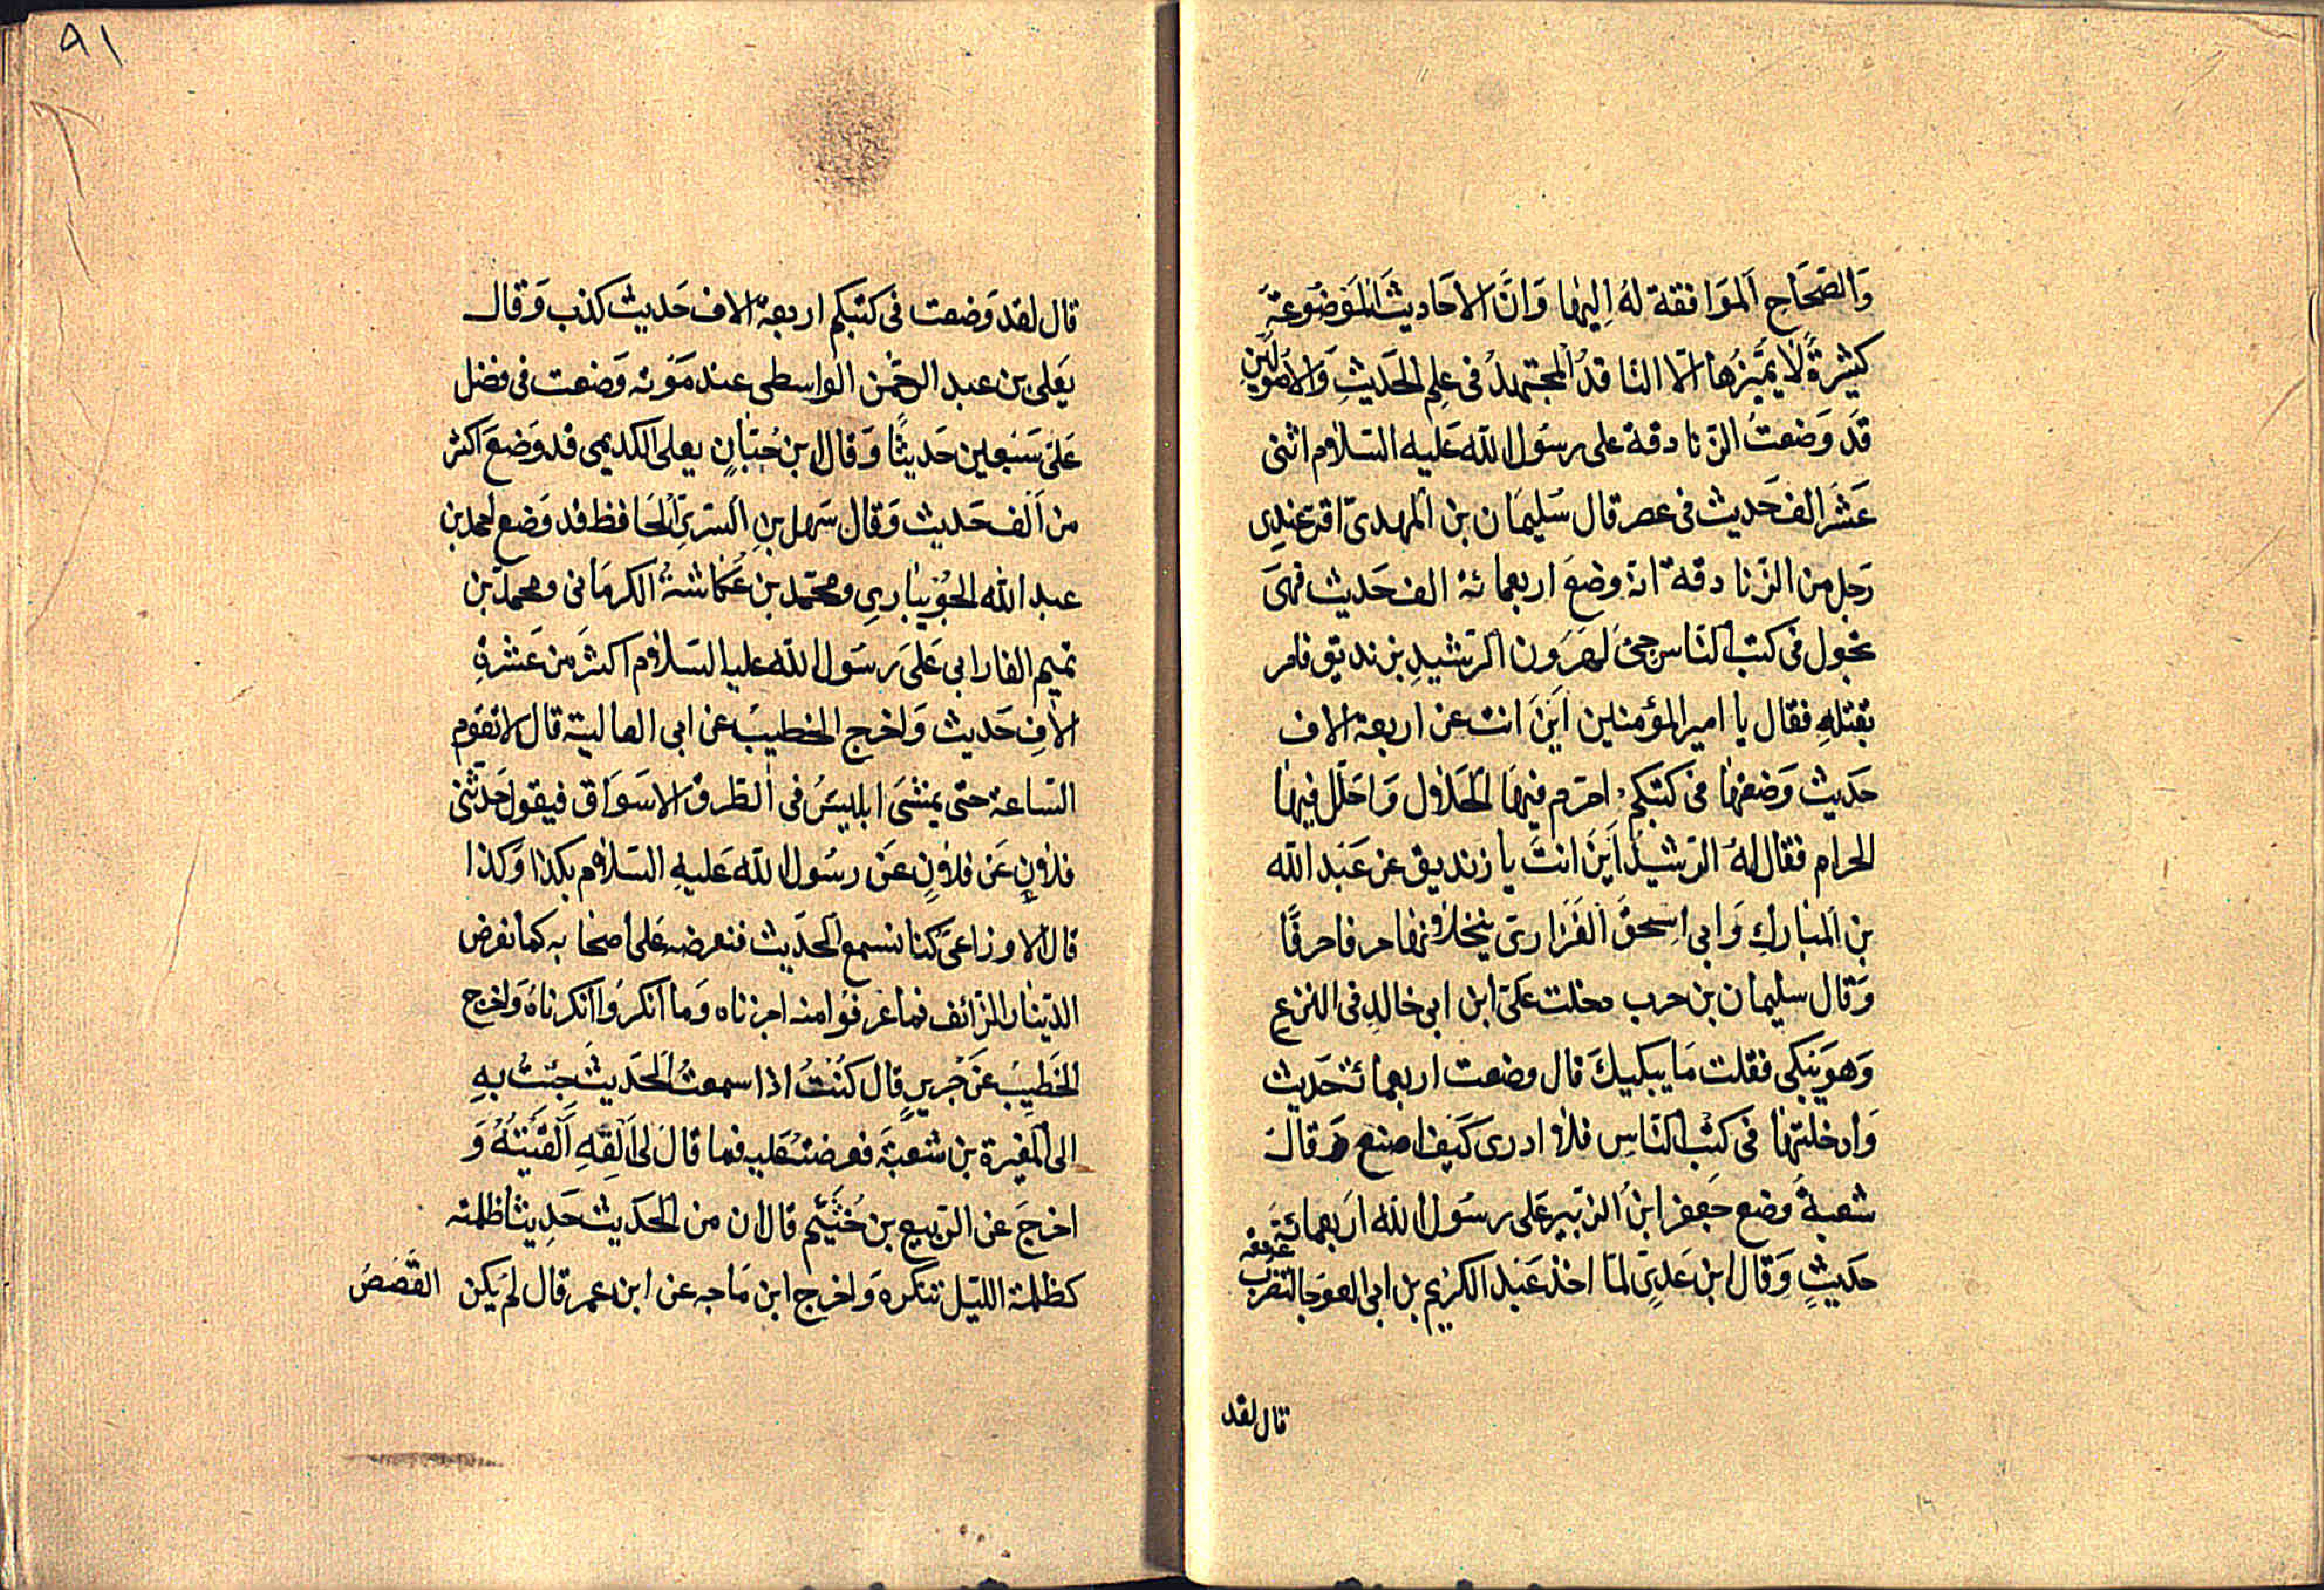 وَالصّحَاحِ اَلموَافقة لهُ اِليهَا وَانَّ الاحَاديثَ المَوضوُعَة
كثيرةً لَا يُميّزهُا الّا النّاقدُ المجتهدُ فى عِلم الحَديثِ وَالاصُوليّنِ
قَد وَضعتُ الزّنادقة على رسُول اللّه عَليه السّلام اثنى
عَشَر الفَ حَديث فى عصر قال سُليمَان بن المهدىّ اقرّ عندِى
رَجل من الزّنادقة انهّ وضعَ اربعمائة الف حَديث فهىَ
تجول فى كتب النّاس جئَ لهرَون الرّشيدِ بزنديق فامر
بقتلهِ فقال يا امير المؤمنين اَينَ انت عن اربعة الاف
حَديث وَضعتها فى كتبكم احَرّم فيهَا الحَلال وَاحَلّل فيهَا
الحرام فقال لهُ الرّشيدُ اَينَ انتَ يا زنديق عن عَبد اللّه
بن المبَارك وَابى اسِحقَ الفَزارىّ ينخلانها حرفا حرفًا
وَقال سليمان بن حرب دخلت عَلىَ ابن ابى خالدِ فى النزع
وَهوَ يَبكى فقلت مَا يبكيكَ قال وضعت اربعمائة حَديث
وَادخلتهَا فى كتب النّاسِ فلا ادرى كَيف اصنع وَقال
شعبةُ وَضع جَعفر ابنُ الزّبير عَلى رسُول اللّه اَربعمائةَ
حَديثٍ وَقال ابن عَدِىّ لمّا اخذ عَبد الكريم بن ابى العوَجا لتضرب عنقه
قال لقد
٩١
قال لقد وَضعت فى كتبكم اربعة الاف حَديث كذب وَقال
يعَلى بن عبد الرحمَٰن الواسطى عند مَوته وَضعت فى فضل
عَلىّ سَبعين حَديثًا وَقال ابن حُبّانٍ يعلى الكديمى قد وَضعَ اكثر
من اَلف حَديث وَقال سَهل بن السّرىّ الحَافظ قد وَضع احمد بن
عبد الله الجوُيبَاري ومحمّد بن عُكاشة الكرمَانى ومحمدّ بن
تميم الفارابى عَلىَ رسَول اللّه عليه السّلام اكثرَ من عَشرةِ
الافِ حَديث وَاخرج الخطيبُ عن ابى العالية قال لا تقوَم
السّاعة حتّى يمشىَ ابليسُ فى الطّرق الاسوَاق فيقول حَدّثنى
فلانٍ عَن فلانٍ عَن رسُول اللّه عَليهِ السّلام بكذا وَكذا
قال الاوزاعىَّ كنا نسمع الحدَيث فنعرضه عَلى اصحابه كما نعرض
الدّينار الزّائف فما عَرفوُا منه اخذناه وَما اَنكرُوا انكرناهُ وَاخرج
الخَطيبُ عَن جَريرٍ قال كنُتُ اذا سمعتُ الحَديثَ جئِتُ بهِ
الى المغيرة بن شعبةَ فعرضتُه عَليه فما قالَ لى اَلقِهِ اَلقَيتهُ وَ
اخرجَ عن الرّبيع بن خُثَيَم قال ان من الحَديث حَدِيثًا ظلمته
كظلمة الليّل تنكره وَاخرج ابن مَاجه عن ابن عمر قال لم يَكن القصَصُ